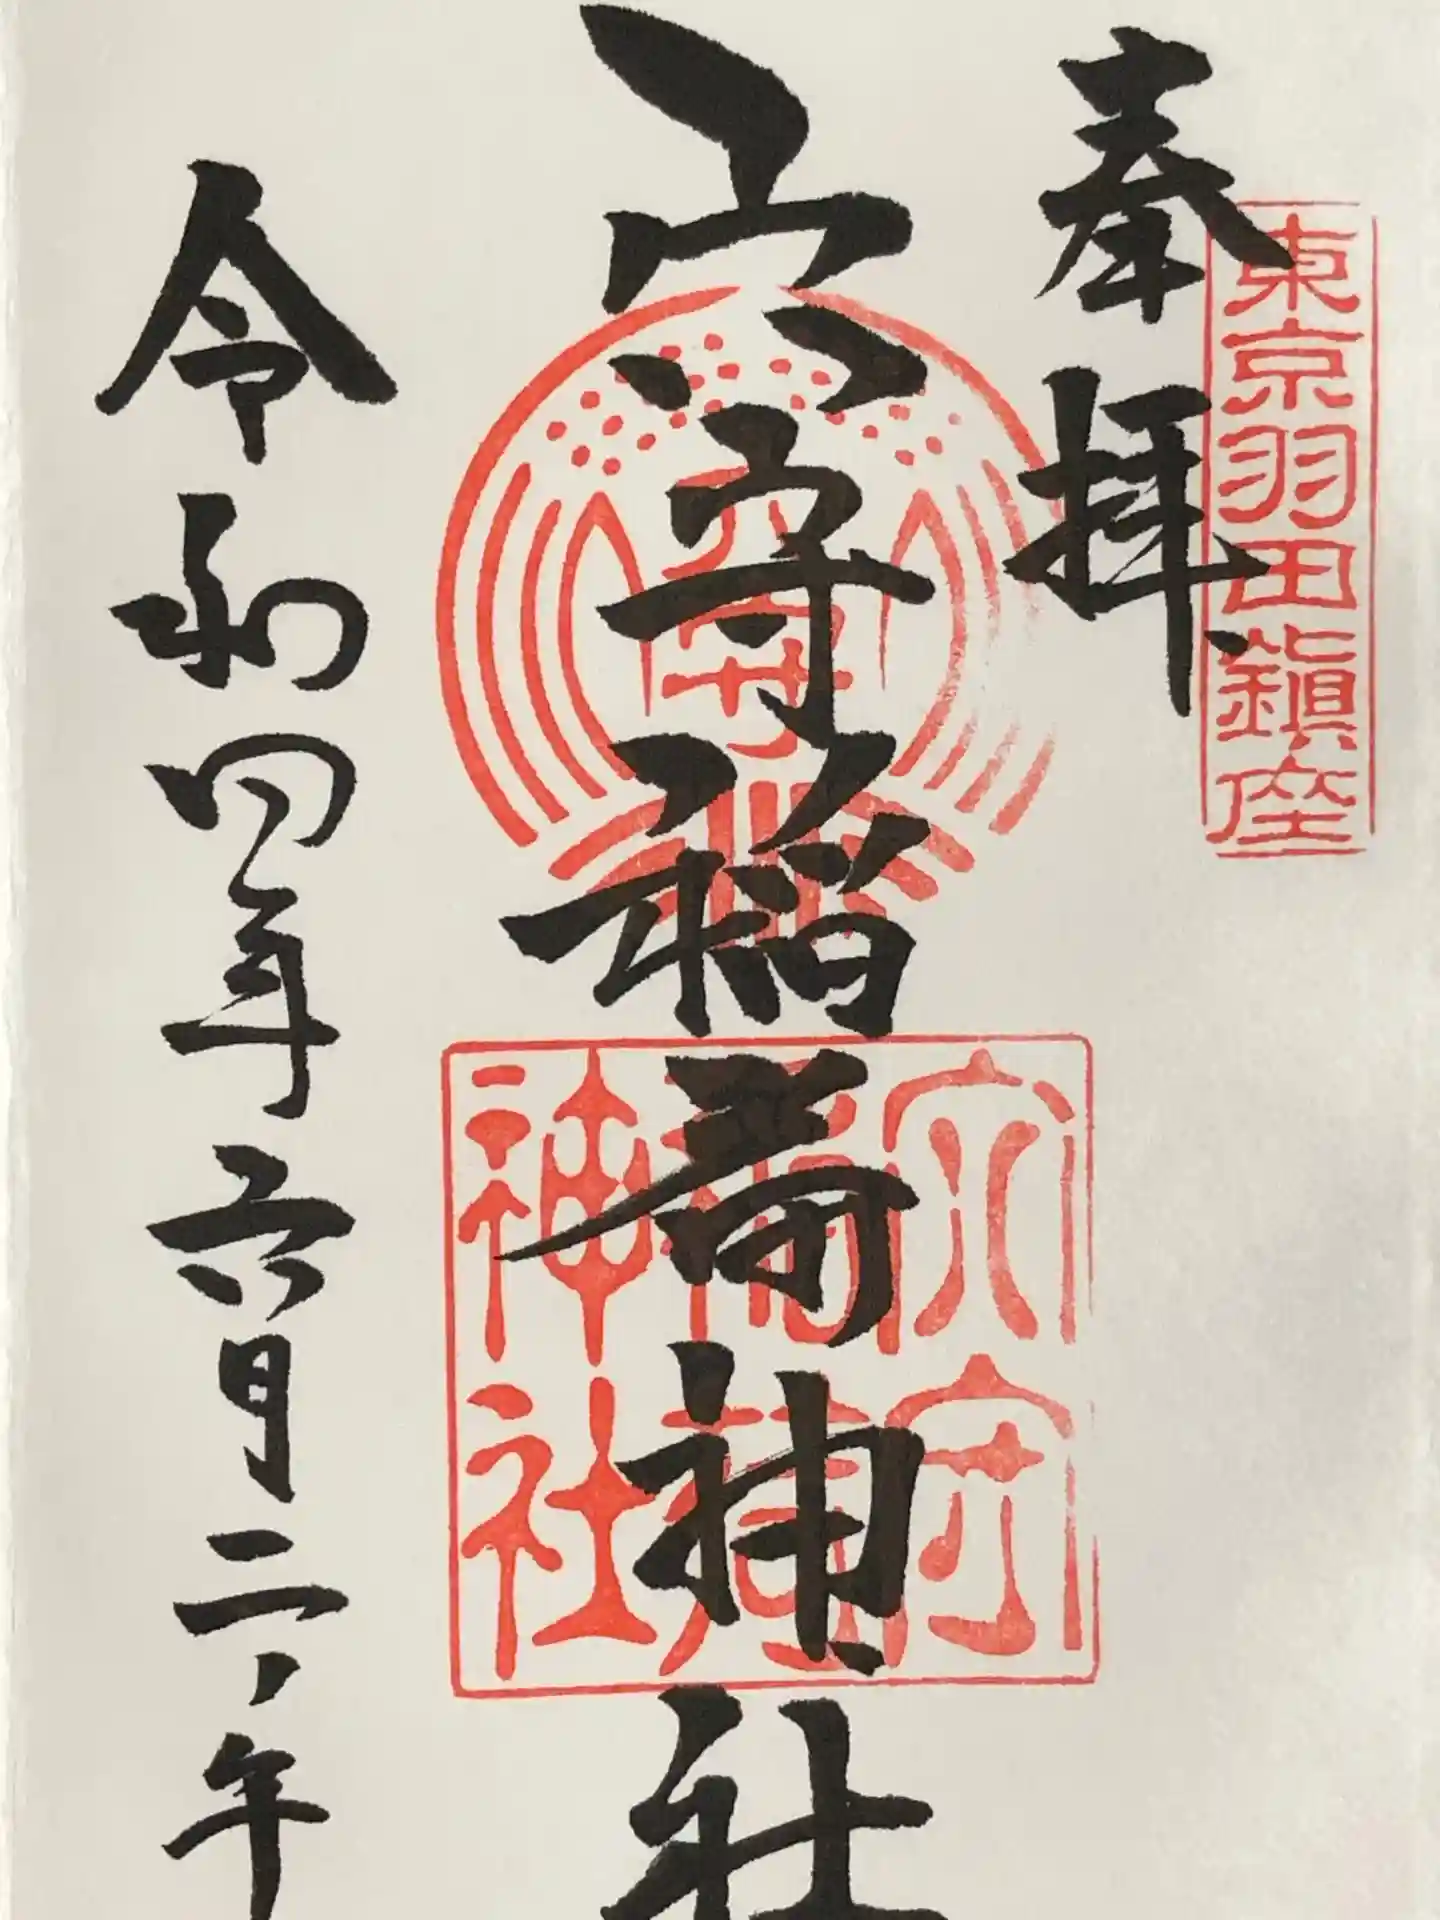 奉拝
東京羽田鎮座
穴守稲荷神社
穴守
稲荷
神社
令和四年六月二